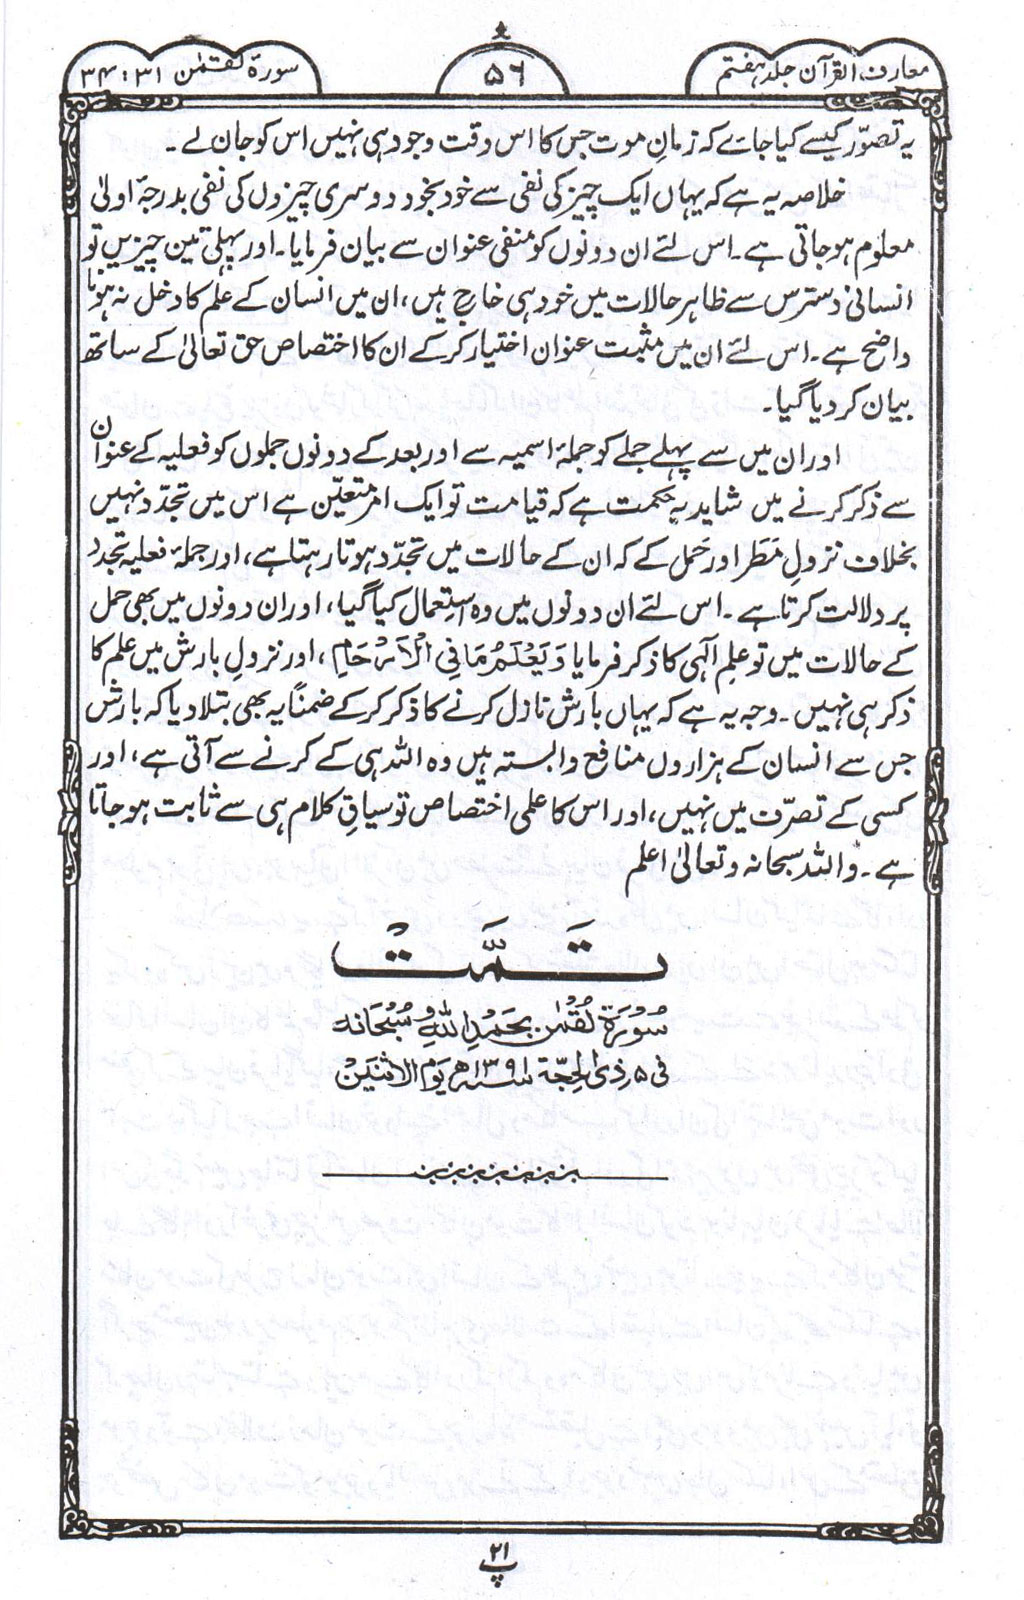 معارف القرآن جلد ہفتم
۵۶
سورۃ لقمٰن ۳۱ : ۳۴
یہ تصوّر کیسے کیا جائے کہ زمانِ موت جس کا اس وقت وجود ہی نہیں اس کو جان لے ۔
خلاصہ یہ ہے کہ یہاں ایک چیز کی نفی سے خود بخود دوسری چیزوں کی نفی بدرجۂ اولیٰ
معلوم ہو جاتی ہے ۔ اس لئے ان دونوں کو منفی عنوان سے بیان فرمایا ۔ اور پہلی تین چیزیں تو
انسانی دسترس سے ظاہر حالات میں خود ہی خارج ہیں ، ان میں انسان کے علم کا دخل نہ ہونا
واضح ہے ۔ اس لئے ان میں مثبت عنوان اختیار کرکے ان کا اختصاص حق تعالیٰ کے ساتھ
بیان کر دیا گیا ۔
اور ان میں سے پہلے جملے کو جملۂ اسمیہ سے اور بعد کے دونوں جملوں کو فعلیہ کے عنوان
سے ذکر کرنے میں شاید یہ حکمت ہے کہ قیامت تو ایک امر متعیّن ہے اس میں تجدّد نہیں
بخلاف نزولِ مَطَر اور حَمل کے کہ ان کے حالات میں تجدّد ہوتا رہتا ہے ، اور جملۂ فعلیہ تجدد
پر دلالت کرتا ہے ۔ اس لئے ان دونوں میں وہ استِعمال کیا گیا ، اور ان دونوں میں بھی حمل
کے حالات میں تو علم الٰہی کا ذکر فرمایا وَيَعْلَمُ مَا فِي الْأَرْحَامِ ، اور نزولِ بارش میں علم کا
ذکر ہی نہیں ۔ وجہ یہ ہے کہ یہاں بارش نازل کرنے کا ذکر کرکے ضمناً یہ بھی بتلا دیا کہ بارش
جس سے انسان کے ہزاروں منافع وابستہ ہیں وہ اللہ ہی کے کرنے سے آتی ہے ، اور
کسی کے تصرّف میں نہیں ، اور اس کا علمی اختصاص تو سیاقِ کلام ہی سے ثابت ہو جاتا
ہے ۔ واللہ سبحانہ وتعالیٰ اعلم
تَمَّتْ
سُوْرَۃ لُقْمٰن بِحَمْدِ اللّٰہِ وَسُبْحَانَہ
فی ۵؍ ذی الحِجّۃ ۱۳۹۱ھ یَوْمَ الاثْنَیْن
پ ۲۱